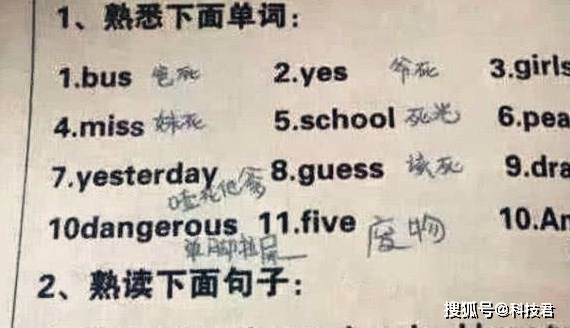 1、熟悉下面单词：
1.bus 爸死 2.yes 爷死 3.girls
4.miss 妹死 5.school 死光 6.pea
7.yesterday 8.guess 该死 9.dra
10dangerous 11.five 废物 10.An
单脚拉屎
2、熟读下面句子：
搜狐号@科技君